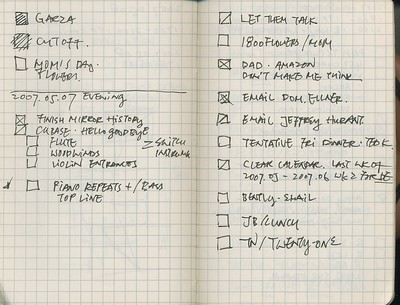 GARZA
CUTOFF.
MOM'S DAY.
FLOWERS.
2007.05.07 EVENING
FINISH MIRROR HISTORY
CUBASE: HELLO GOODBYE
FLUTE
WOODWINDS
VIOLIN ENTRANCES
SWITCH
PIANO REPEATS + / BASS
TOP LINE
LET THEM TALK
1800FLOWERS / MOM
DAD. AMAZON
DON'T MAKE ME THINK
EMAIL DOM.
EMAIL JEFFREY
TENTATIVE FRI DINNER.
CLEAR CALENDAR. LAST WK OF
2007.05 - 2007.06 WK 2
BENTLY. EMAIL
JB / LUNCH
TW / TWENTY-ONE